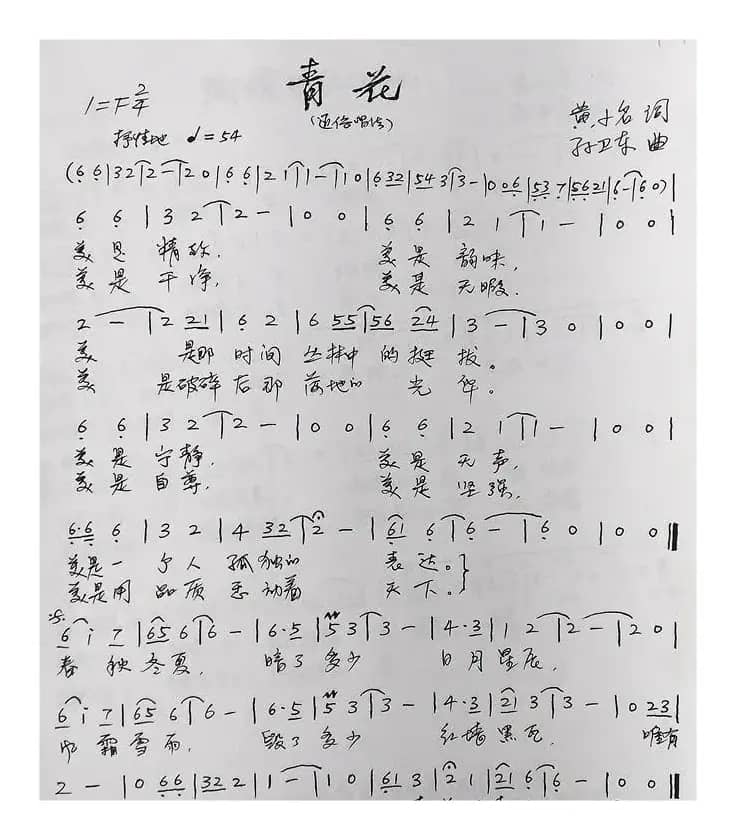 青花
1=F 2/4
(通俗唱法)
抒情地 ♩=54
黄小名 词
孙卫东 曲
(6 6|3 2 2|2 0|6 6|2 1 1|1 0|6 32|54 3 3-|0 06|53 7|56 21|6-|6 0)|
6 6|3 2 2-|0 0|6 6|2 1 1-|0 0|
美是 精致, 美是 韵味,
美是 干净, 美是 无暇.
2 -|2 21|6 2|6 55|56 24|3 -|3 0|0 0|
美 是那 时间 丛林中 的挺 拔。
美 是破碎 后那 落地的 光 辉。
6 6|3 2 2-|0 0|6 6|2 1 1-|0 0|
美是 宁静, 美是 无声,
美是 自尊, 美是 坚强,
6·6 6|3 2|4 32|2 -|61 6|6 -|6 0|0 0‖
美是一 个人 孤独的 表达。
美是用 品质 感动着 天下。
6 i 7|65 6|6 -|6·5|5 3|3 -|4·3|1 2|2 -|2 0|
春 秋冬夏, 暗了多少 日月星辰,
6 i 7|65 6|6 -|6·5|5 3|3 -|4·3|21 3|3 -|0 23|
霜雪雨, 毁了多少 红墙黑瓦, 唯有
2 -|0 66|32 2|1 -|1 0|61 3|2 1|21 6|6 -|0 0‖